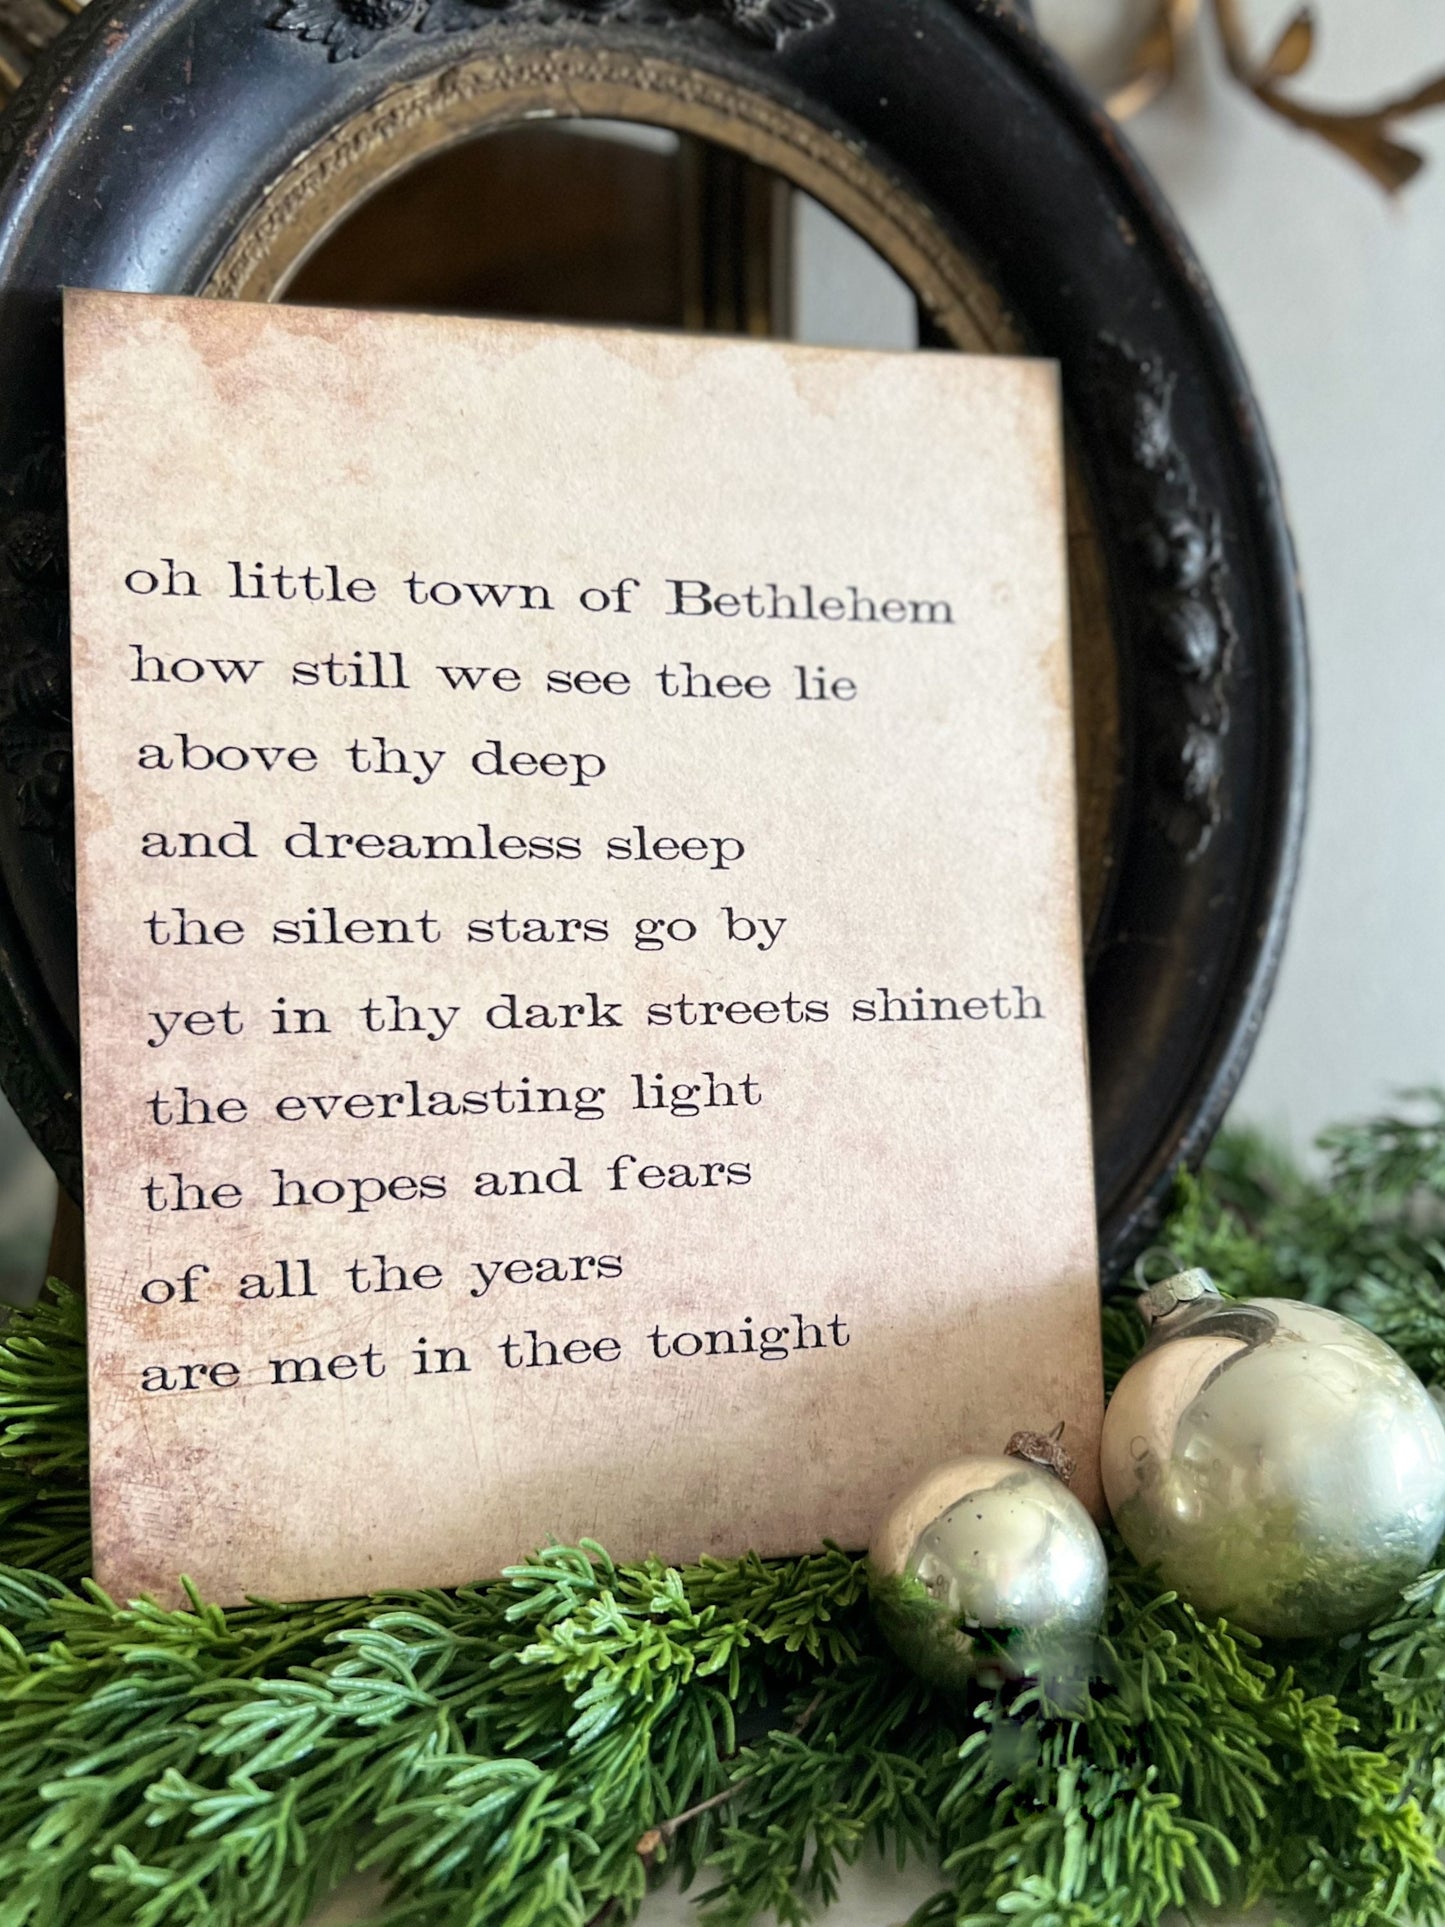 oh little town of Bethlehem
how still we see thee lie
above thy deep
and dreamless sleep
the silent stars go by
yet in thy dark streets shineth
the everlasting light
the hopes and fears
of all the years
are met in thee tonight